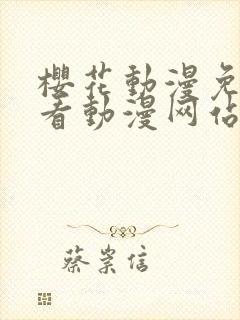 櫻花動漫免
看動漫网站
蔡崇信